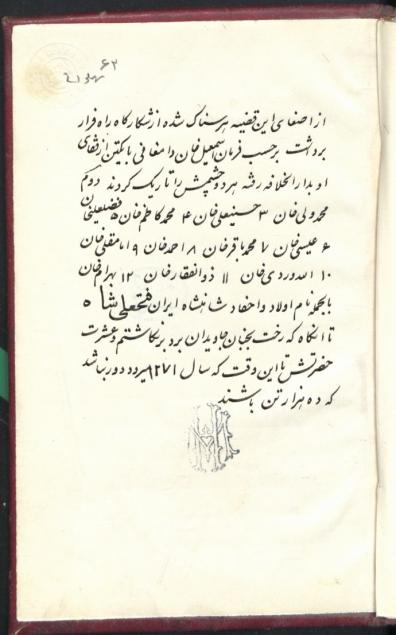 ۶۲
از اصغای این قضیه هرسناک شده از شکارگاه راه فرار
برداشت برحسب فرمان اسمعیل خان دامغانی با یکتن از ثقای
او بدار الخلافه رفته هر دو چشمش را تاریک کردند دوم
محمد ولی خان ۳ حسنیعلی خان ۴ محمد کاظم خان ۵ فضلعلیخان
۶ عیسی خان ۷ محمد باقر خان ۸ احمد خان ۹ امامقلی خان
۱۰ الله وردی خان ۱۱ ذوالفقار خان ۱۲ بهرام خان
بالجمله نام اولاد و احفاد شاهنشاه ایران فتحعلی شاه
تا انگاه که رخت بجنان جاویدان برد بزیکاشتم و عشرت
حضرتش تا این وقت که سال ۱۲۷۱ میرود دور نباشد
که ده هزار تن باشند